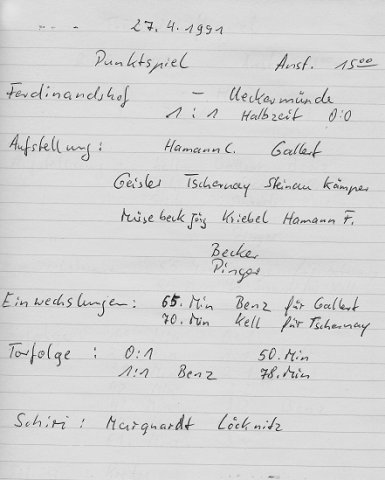 27. 4. 1991
Punktspiel Anst. 15⁰⁰
Ferdinandshof - Ueckermünde
1 : 1 Halbzeit 0:0
Aufstellung : Hamann C. Gallert
Geisler Tschernay Steinau Kämper
Müsebeck Jörg Kriebel Hamann F.
Becker
Dinger
Einwechslungen: 65. Min Benz für Gallert
70. Min Kell für Tschernay
Torfolge : 0:1 50. Min
1:1 Benz 78. Min
Schiri : Marquardt Löcknitz